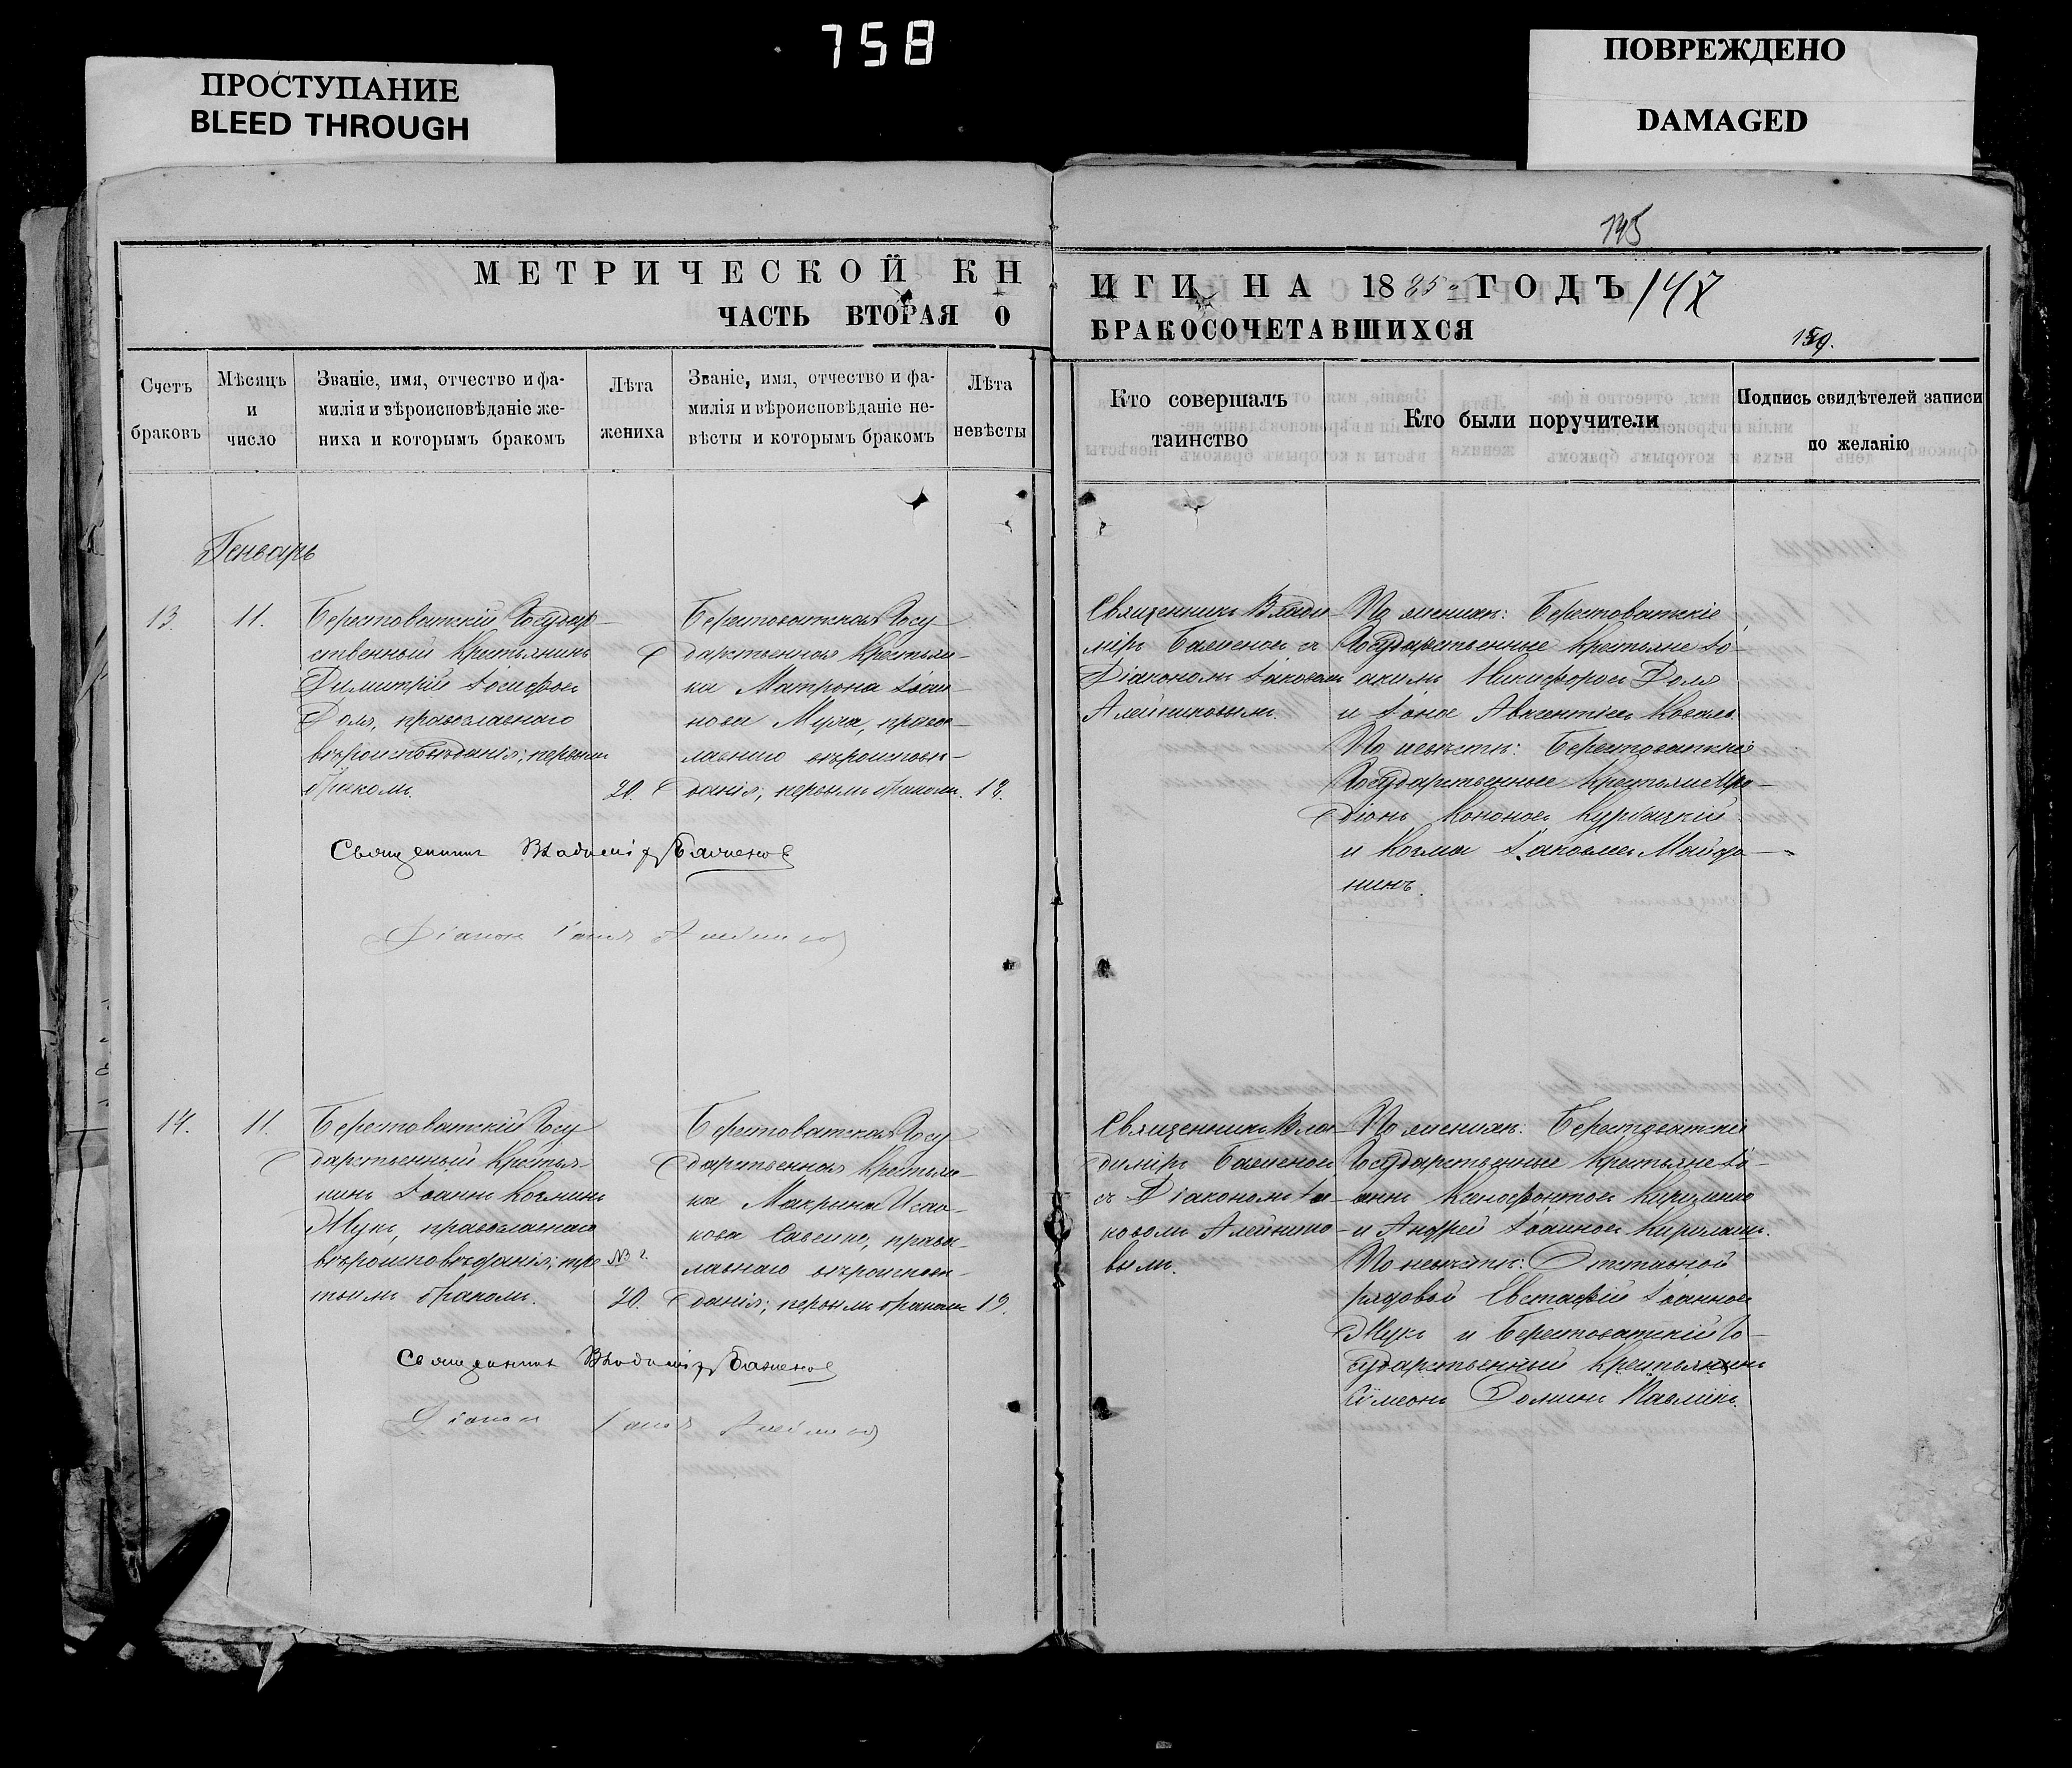 758
ПРОСТУПАНИЕ
BLEED THROUGH
ПОВРЕЖДЕНО
DAMAGED
195
МЕТРИЧЕСКОЙ КН
ИГИ НА 1885 ГОДЪ 147
ЧАСТЬ ВТОРАЯ О
БРАКОСОЧЕТАВШИХСЯ
159.
Счетъ
браковъ
Мѣсяцъ
и
число
Званіе, имя, отчество и фа-
милія и вѣроисповѣданіе же-
ниха и которымъ бракомъ
Лѣта
жениха
Званіе, имя, отчество и фа-
милія и вѣроисповѣданіе не-
вѣсты и которымъ бракомъ
Лѣта
невѣсты
Кто совершалъ
таинство
Кто были поручители
Подпись свидѣтелей записи
по желанію
Генварь
13.
11.
Берестоватскій Государ-
ственный Крестьянинъ
Димитрій Іосифовъ
Доля, православнаго
вѣроисповѣданія; первымъ
бракомъ.
20.
Берестоватская Госу-
дарственная Крестьян-
ка Матрона Іоан-
нова Муха, правос-
лавнаго вѣроисповѣ-
данія; первымъ бракомъ.
18.
Священникъ Влади-
міръ Баженовъ съ
Діакономъ Іаковомъ
Алейниковымъ.
По женихѣ: Берестоватскіе
Государственные Крестьяне Іо-
акимъ Никифоровъ Доля
и Іона Авксентіевъ Коваль.
По невѣстѣ: Берестоватскіе
Государственные Крестьяне Иро-
діонъ Кононовъ Курбацкій
и Козма Іаковлевъ Майда-
никъ.
Священникъ Владиміръ Баженовъ
Діаконъ Іаковъ Алейниковъ
14.
11.
Берестоватскій Госу-
дарственный Крестья-
нинъ Іоаннъ Козминъ
Жукъ, православнаго
вѣроисповѣданія; тре-
тьимъ бракомъ.
20.
Берестоватская Госу-
дарственная Крестьян-
ка Макрина Исаа-
кова Савенко, правос-
лавнаго вѣроисповѣ-
данія; первымъ бракомъ
19.
Священникъ Вла-
диміръ Баженовъ
съ Діакономъ Іа-
ковомъ Алейнико-
вымъ.
По женихѣ: Берестоватскіе
Государственные Крестьяне Іо-
аннъ Ксенофонтовъ Кириленко
и Андрей Іоанновъ
По невѣстѣ: Отставной
рядовой Евстафій Іоанновъ
Жукъ и Берестоватскій Го-
сударственный Крестьянинъ
Сѵмеонъ
Священникъ Владиміръ Баженовъ
Діаконъ Іаковъ Алейниковъ